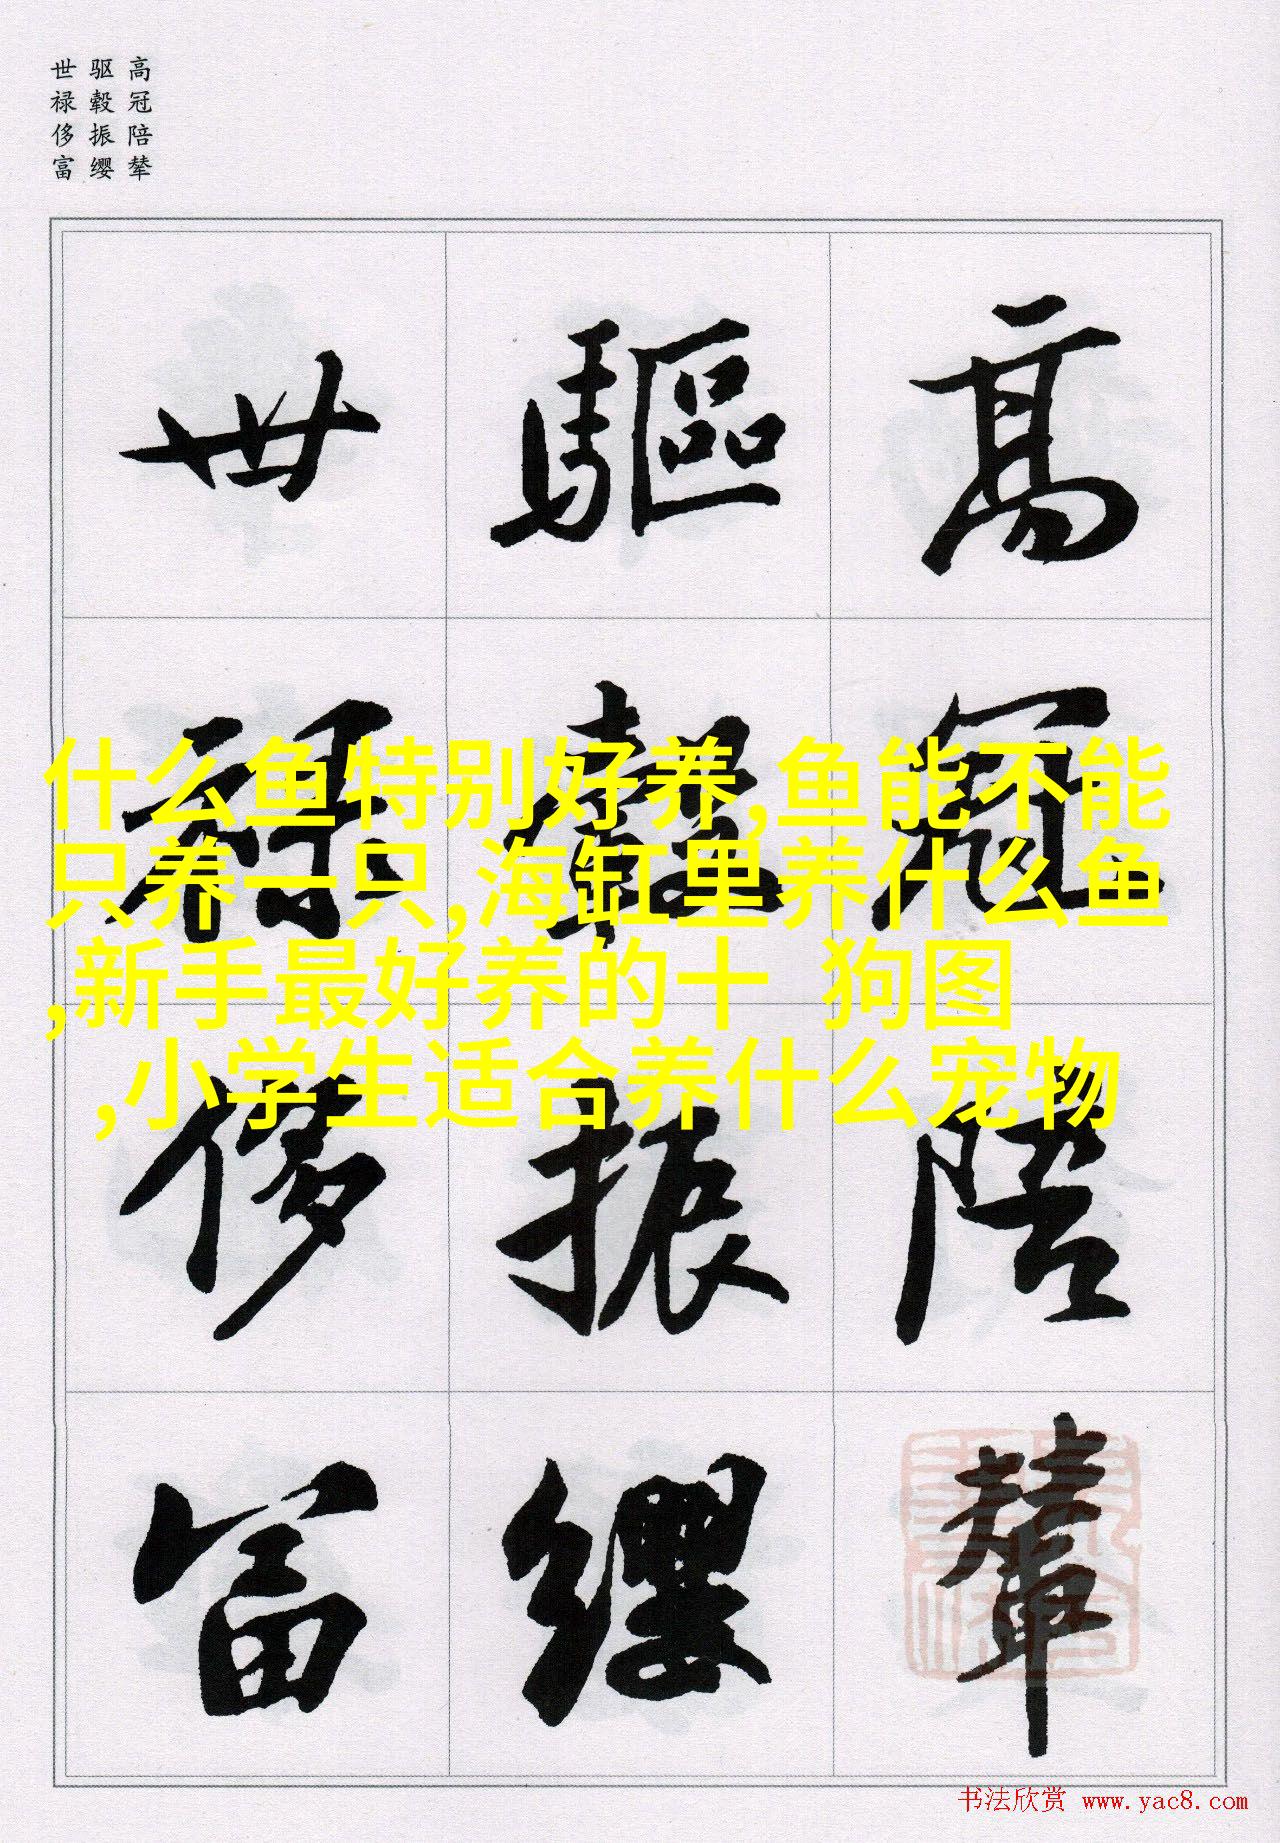 高冠陪辇
驱毂振缨
世禄侈富
高冠陪輦
驅轂振纓
世禄侈富
什么鱼特别好养,鱼能不能
只养一只,海缸里养什么鱼
,新手最好养的十 狗图
,小学生适合养什么宠物
书法欣赏 www.yac8.com